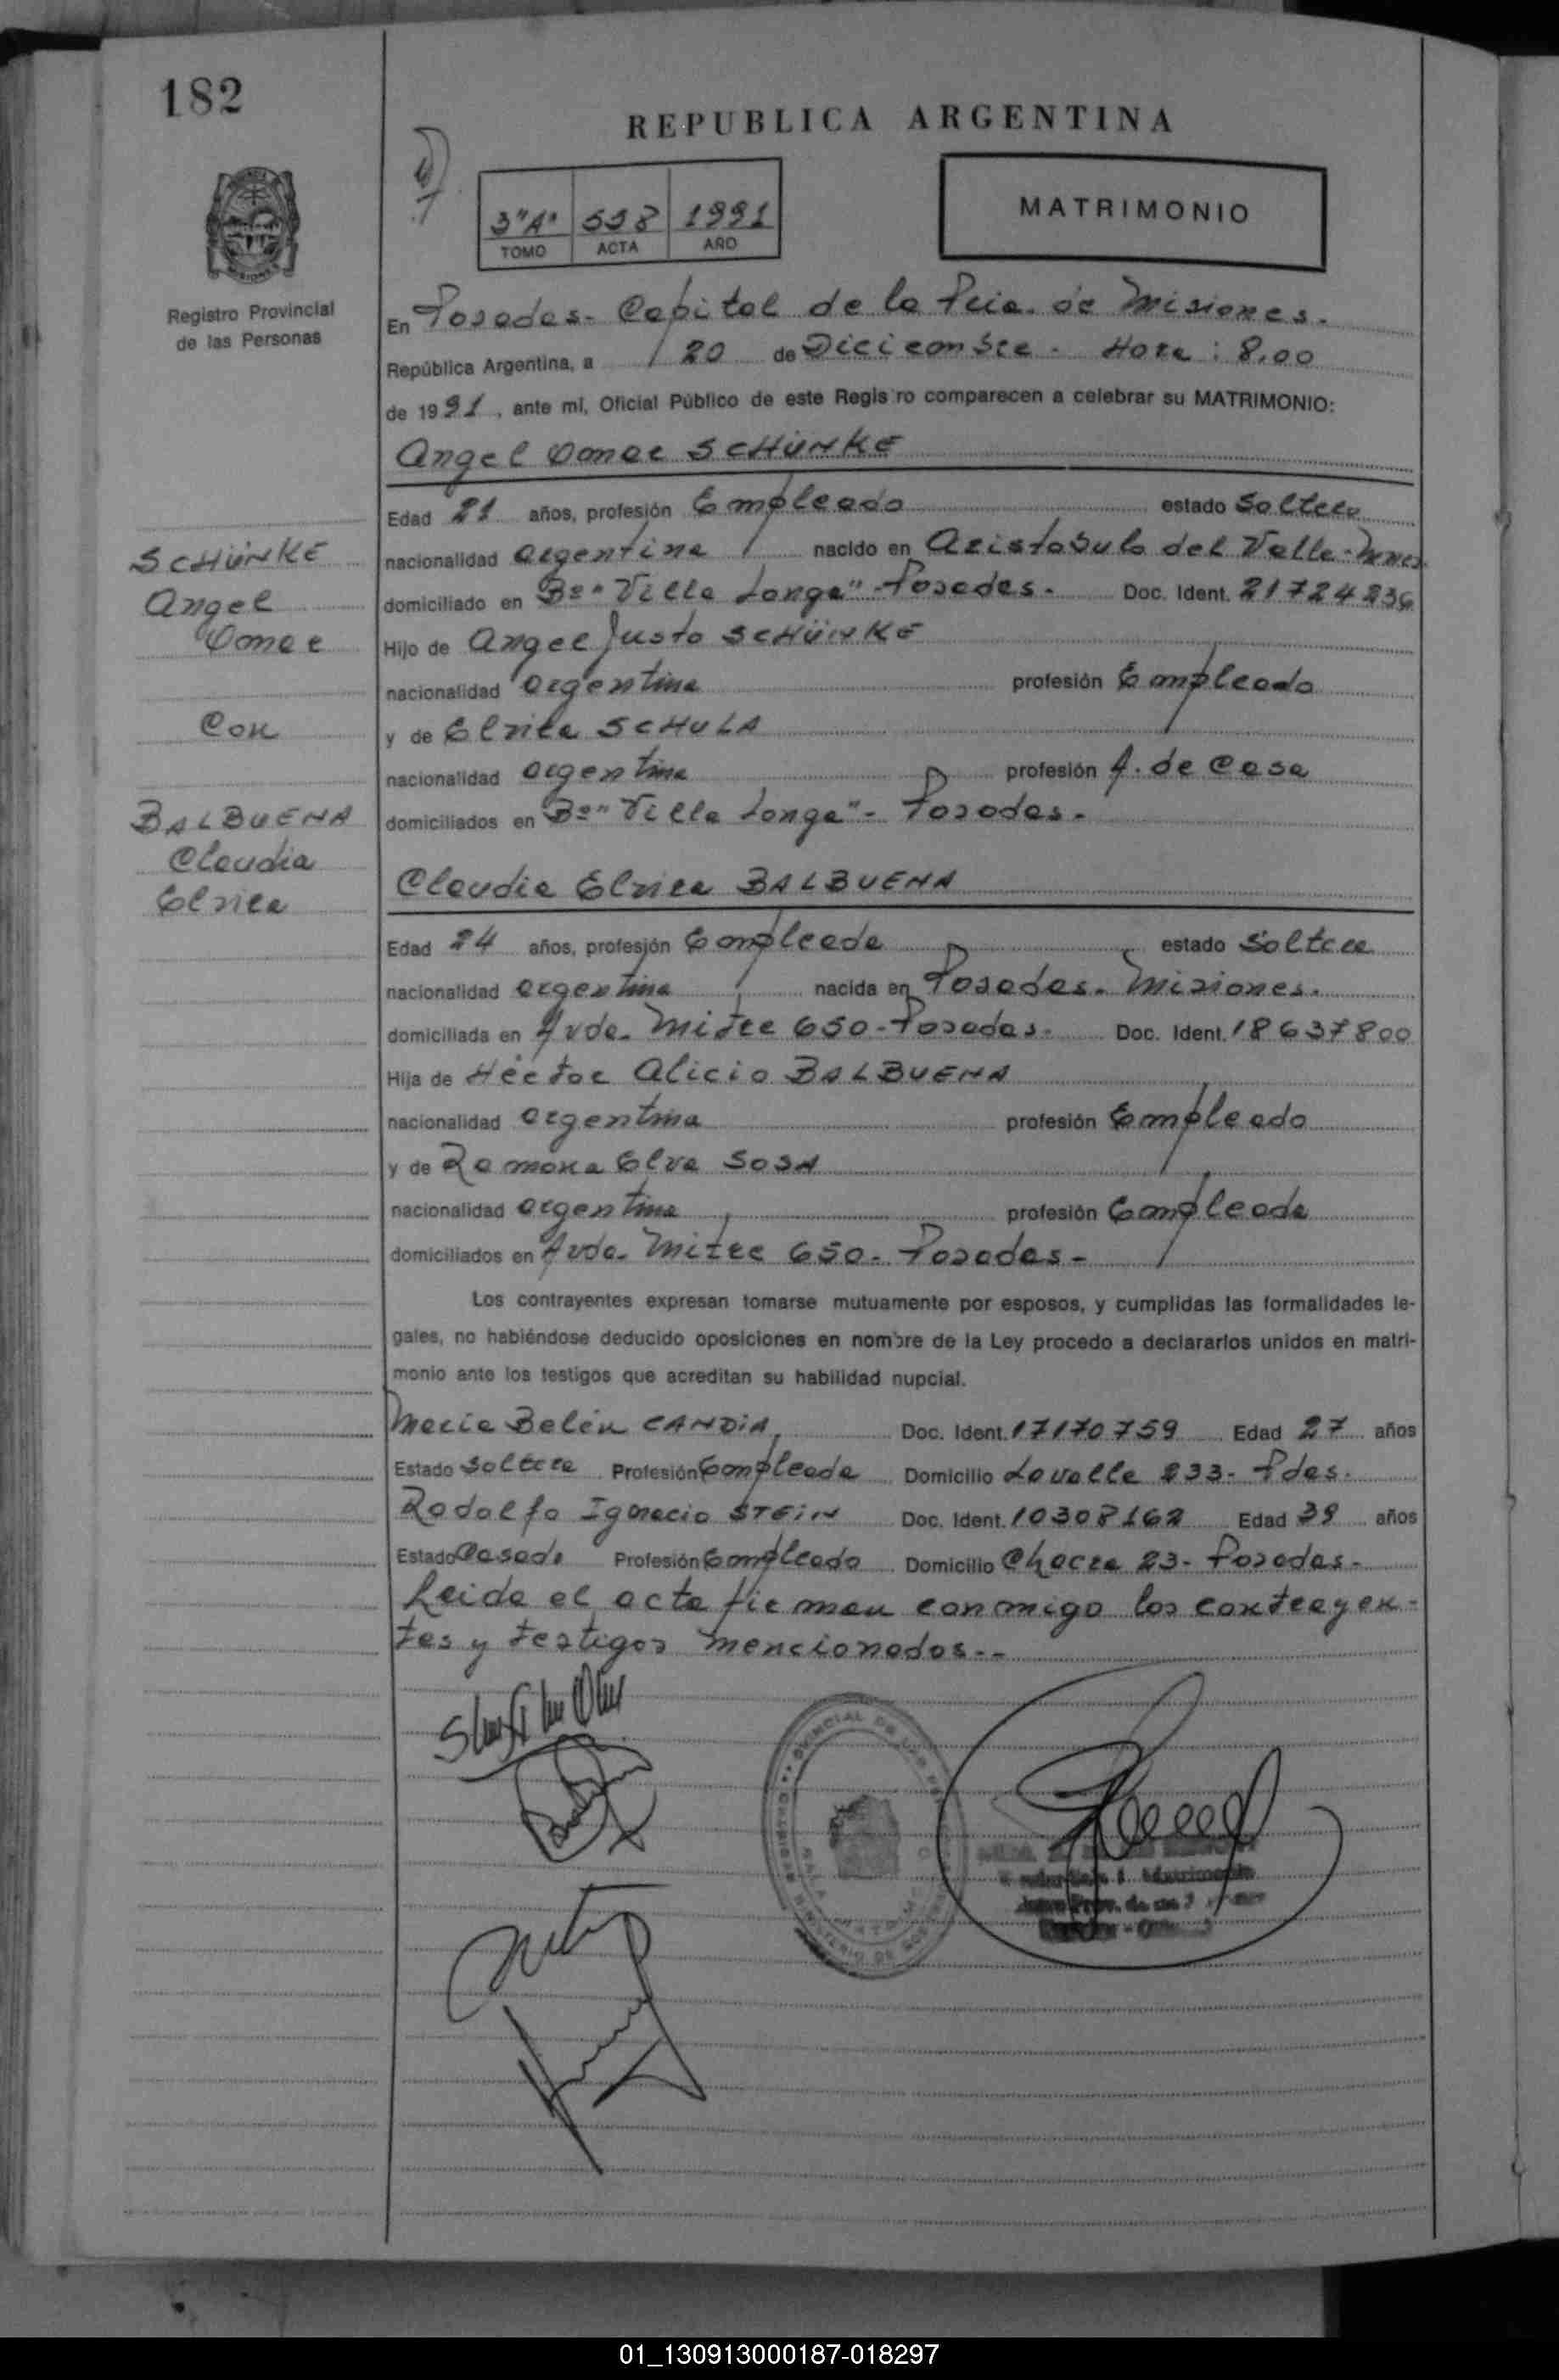 182
REPUBLICA ARGENTINA
3"A" 538 1991
TOMO ACTA AÑO
MATRIMONIO
Registro Provincial
de las Personas
En Posadas- Capital de la Pcia. de Misiones.
República Argentina, a 20 de Diciembre - Hora: 8,00
de 1991, ante mí, Oficial Público de este Registro comparecen a celebrar su MATRIMONIO:
Angel Omar SCHÜNKE
Edad 21 años, profesión Empleado estado Soltero
SCHÜNKE
nacionalidad argentina nacido en Aristobulo del Valle-Mnes.
Angel
domiciliado en Bº "Villa Longa"-Posadas. Doc. Ident. 21724236
Omar
Hijo de Angel Justo SCHÜNKE
nacionalidad argentina profesión Empleado
Con
y de Elzira SCHULA
nacionalidad argentina profesión A. de Casa
BALBUENA
domiciliados en Bº "Villa Longa"- Posadas.
Claudia
Elzira
Claudia Elzira BALBUENA
Edad 24 años, profesión Empleada estado Soltera
nacionalidad argentina nacida en Posadas- Misiones.
domiciliada en Avda. Mitre 650-Posadas. Doc. Ident. 18637800
Hija de Héctor Alicio BALBUENA
nacionalidad argentina profesión Empleado
y de Ramona Elva SOSA
nacionalidad argentina profesión Empleada
domiciliados en Avda. Mitre 650- Posadas-
Los contrayentes expresan tomarse mutuamente por esposos, y cumplidas las formalidades le-
gales, no habiéndose deducido oposiciones en nombre de la Ley procedo a declararlos unidos en matri-
monio ante los testigos que acreditan su habilidad nupcial.
Maria Belén CANDIA Doc. Ident. 17170759 Edad 27 años
Estado Soltera Profesión Empleada Domicilio Lavalle 233- Pdas.
Rodolfo Ignacio STEIN Doc. Ident. 10308162 Edad 39 años
Estado Casado Profesión Empleado Domicilio Chacra 23- Posadas-
Leida el acta firman conmigo los contrayen-
tes y testigos mencionados--
01_130913000187-018297